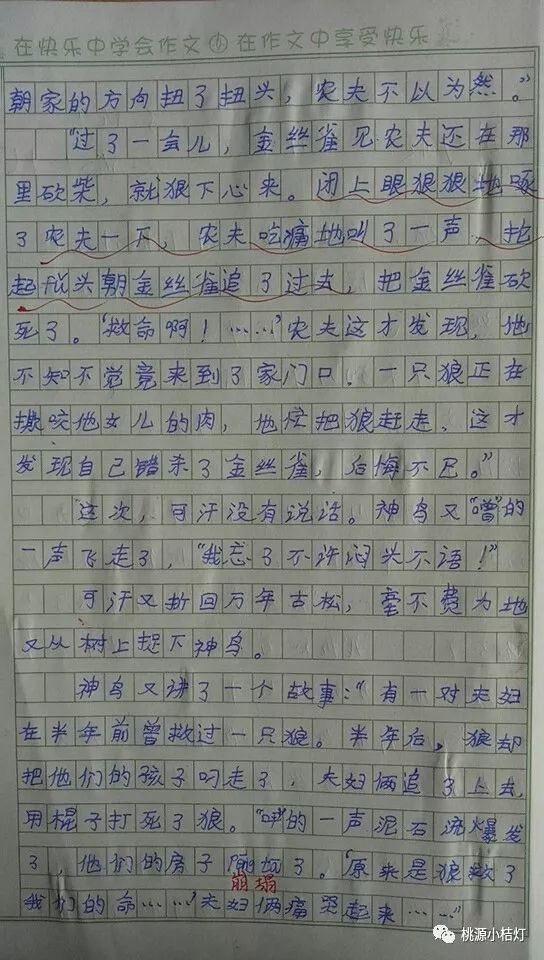 在快乐中学会作文 在作文中享受快乐
朝家的方向扭了扭头，农夫不以为然。”
“过了一会儿，金丝雀见农夫还在那
里砍柴，就狠下心来。闭上眼狠狠地啄
了农夫一下，农夫吃痛地叫了一声，抡
起斧头朝金丝雀追了过去，把金丝雀砍
死了。“救命啊！……”农夫这才发现，他
不知不觉竟来到了家门口．一只狼正在
撕咬他女儿的肉，他忙把狼赶走，这才
发现自己错杀了金丝雀，后悔不已。”
这次，可汗没有说话。神鸟又“噌”的
一声飞走了，“我忘了不许闷头不语！”
可汗又折回万年古松，毫不费力地
又从树上捉下神鸟。
神鸟又讲了一个故事：“有一对夫妇
在半年前曾救过一只狼。半年后，狼却
把他们的孩子叼走了，夫妇俩追了上去，
用棍子打死了狼。“呯”的一声泥石流爆发
了，他们的房子了。“原来是狼救了
崩塌
我们的命……”夫妇俩痛哭起来……”
桃源小桔灯